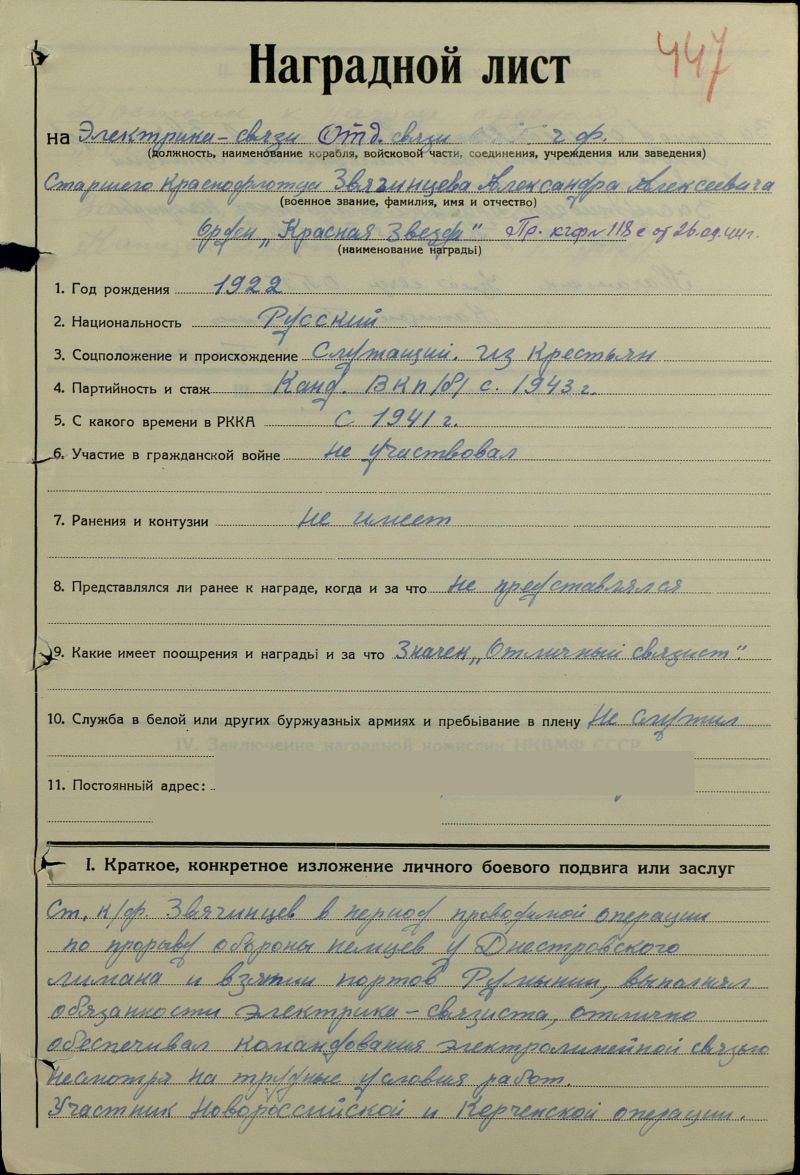 447
Наградной лист
на Электрика-связи Отд. связи ч. ф.
(должность, наименование корабля, войсковой части, соединения, учреждения или заведения)
Старшего Краснофлотца Звягинцева Александра Алексеевича
(военное звание, фамилия, имя и отчество)
Орден „Красная Звезда" Пр. кчф № 118с от 26.09.44г.
(наименование награды)
1. Год рождения 1922
2. Национальность Русский
3. Соцположение и происхождение Служащий. из Крестьян
4. Партийность и стаж Канд. ВКП/б/ с. 1943г.
5. С какого времени в РККА с 1941 г.
6. Участие в гражданской войне не участвовал
7. Ранения и контузии не имеет
8. Представлялся ли ранее к награде, когда и за что не представлялся
9. Какие имеет поощрения и награды и за что Значек „Отличный связист".
10. Служба в белой или других буржуазных армиях и пребывание в плену Не служил
IV. Заключение наградной комиссии НКВМФ СССР
11. Постоянный адрес:
I. Краткое, конкретное изложение личного боевого подвига или заслуг
Ст. к/ф. Звягинцев в период проводимой операции
по прорыву обороны немцев у Днестровского
лимана и взятии портов Румынии, выполнял
обязанности электрика-связиста, отлично
обеспечивал командования электролинейной связью
несмотря на трудные условия работ.
Участник Новороссийской и Керченской операции.